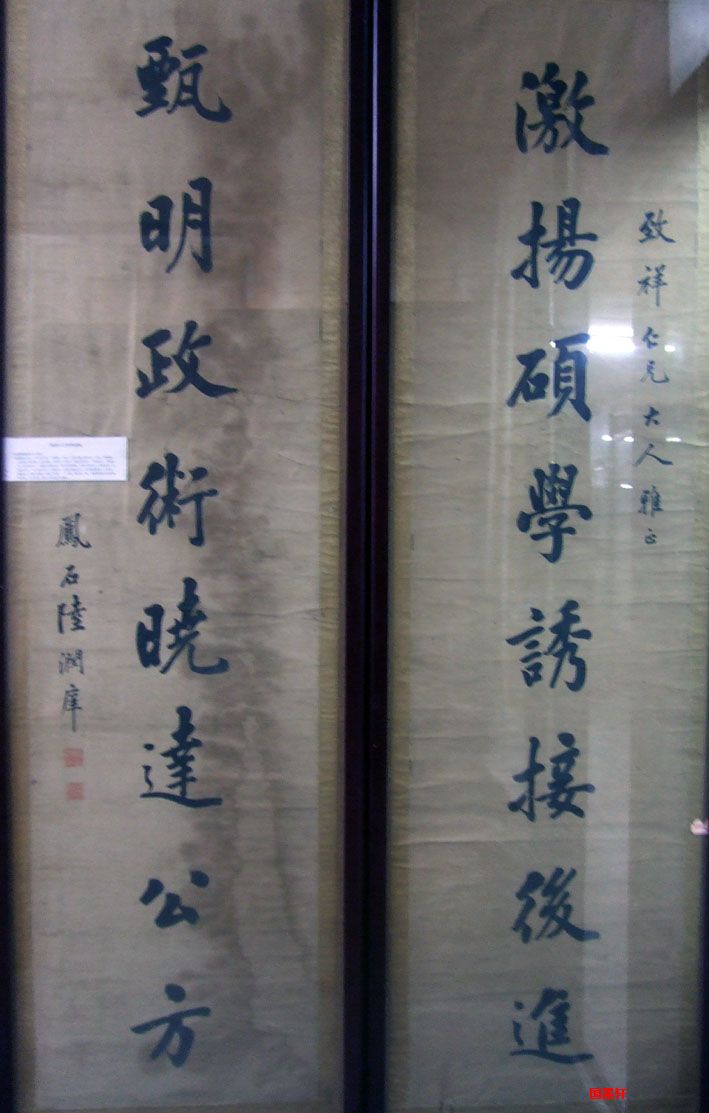 致祥仁兄大人雅正
激揚碩學誘接後進
甄明政術曉達公方
鳳石陸潤庠